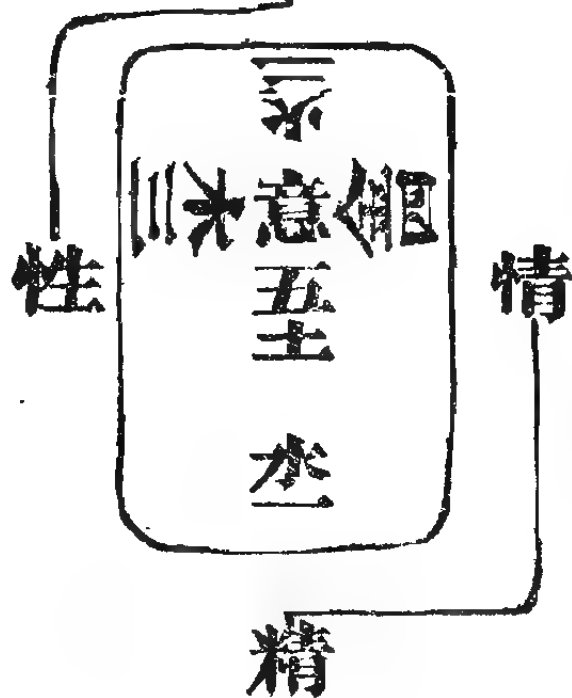 二火
三木
意
四金
五土
水一
性
情
精